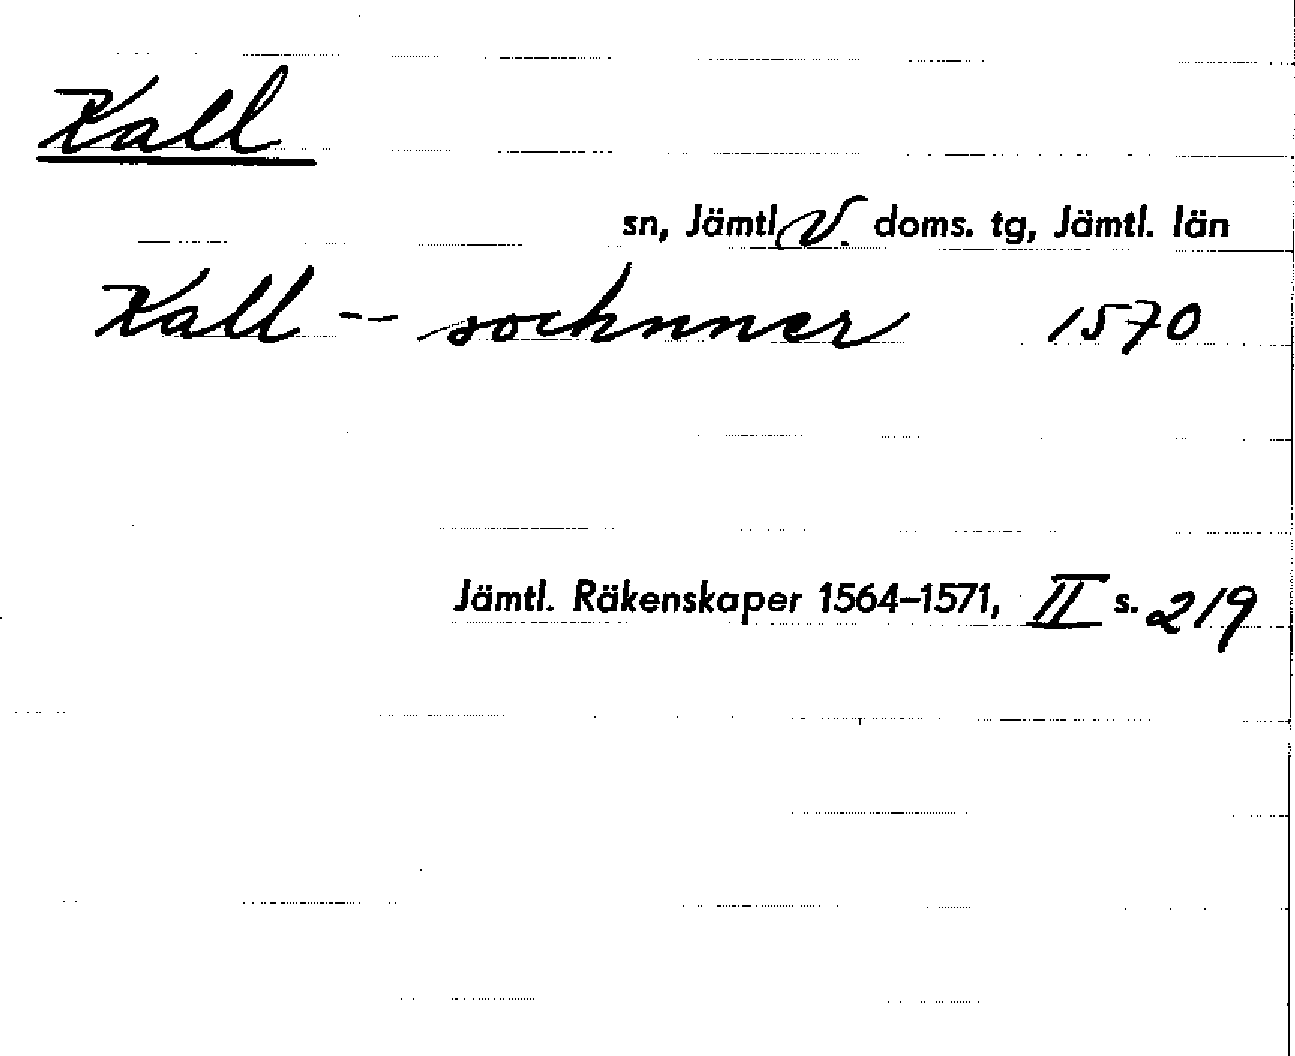 Kall
sn, Jämtl. V. doms. tg, Jämtl. län
Kall -- socknner 1570
Jämtl. Räkenskaper 1564–1571, II s. 219